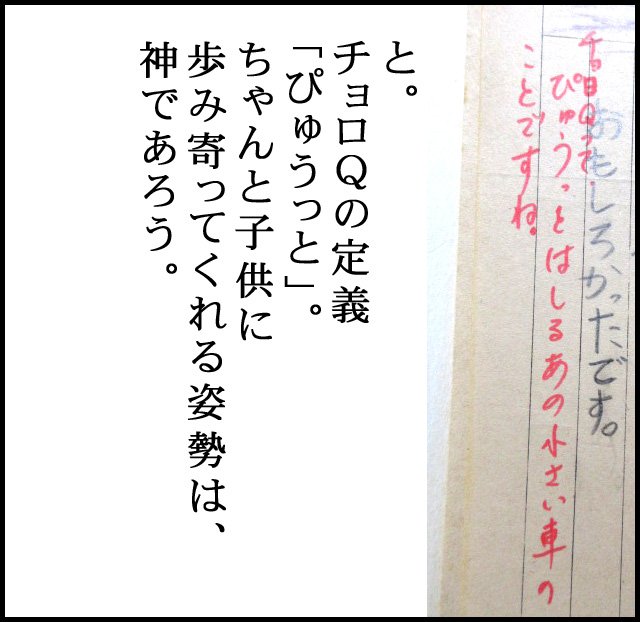 おもしろかったです。
チョロQって
ぴゅうっとはしるあの小さい車の
ことですね。
と。
チョロQの定義
「ぴゅうっと」。
ちゃんと子供に
歩み寄ってくれる姿勢は、
神であろう。